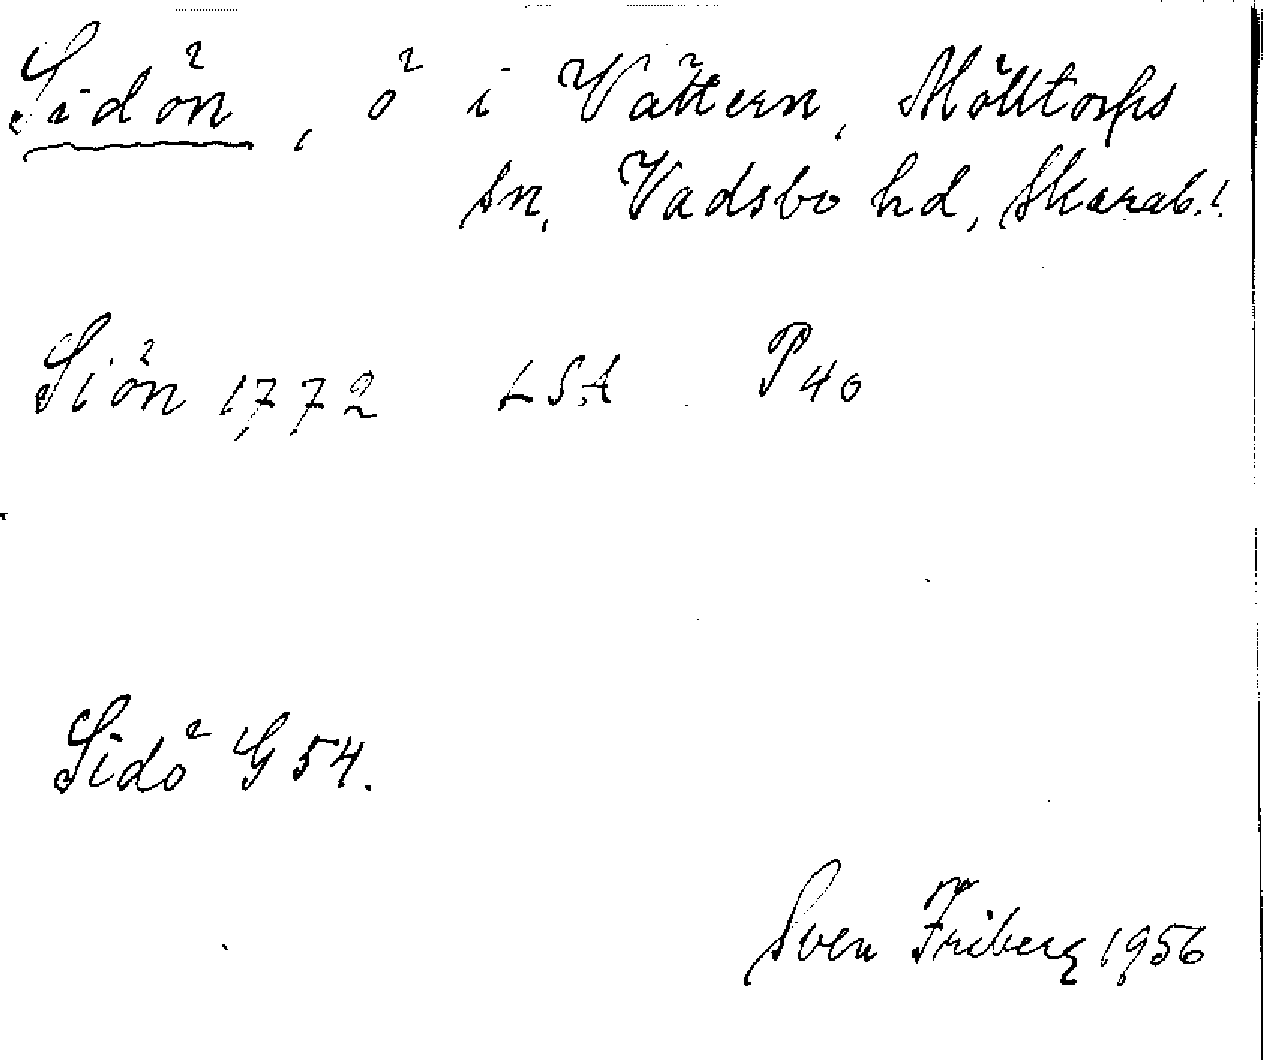 Sidön, ö i Vättern, Mölltorps
sn, Vadsbo hd, Skarab. l.
Siön 1772 LSA P40
Sidö G54.
Sven Friberg 1956